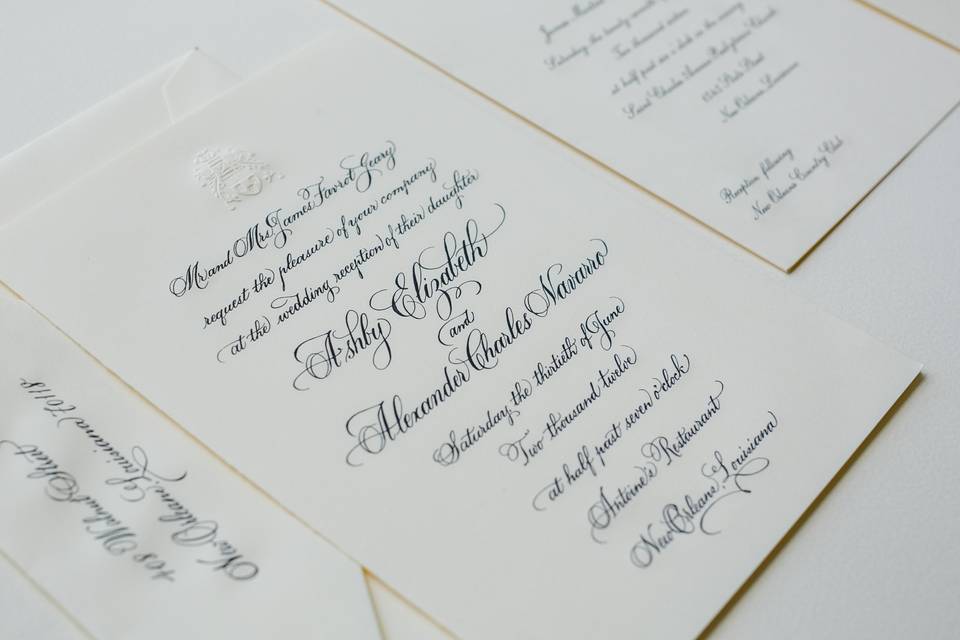 Mr and Mrs James Favrot Geary
request the pleasure of your company
at the wedding reception of their daughter
Ashby Elizabeth
and
Alexander Charles Navarro
Saturday the thirtieth of June
Two thousand twelve
at half past seven o'clock
Antoine's Restaurant
New Orleans, Louisiana
Saturday the twenty
Two thousand
at half past six o'clock in the evening
Saint Charles Avenue
New Orleans, Louisiana
Reception following
New Orleans Country Club
408 Walnut Street
New Orleans, Louisiana 70118